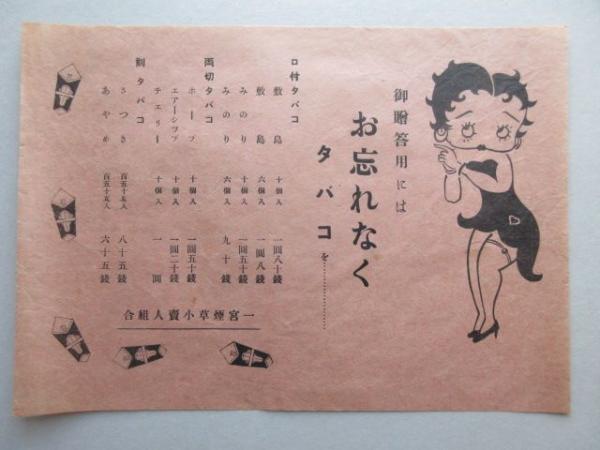 御贈答用には
お忘れなく
タバコを…………
口付タバコ
敷島 十個入 一圓八十錢
敷島 六個入 一圓八錢
みのり 十個入 一圓五十錢
みのり 六個入 九十錢
両切タバコ
ホープ 十個入 一圓五十錢
エアーシップ 十個入 一圓二十錢
チェリー 十個入 一圓
刻タバコ
さつき 百五十瓦入 八十五錢
あやめ 百五十瓦入 六十五錢
一宮煙草小賣人組合